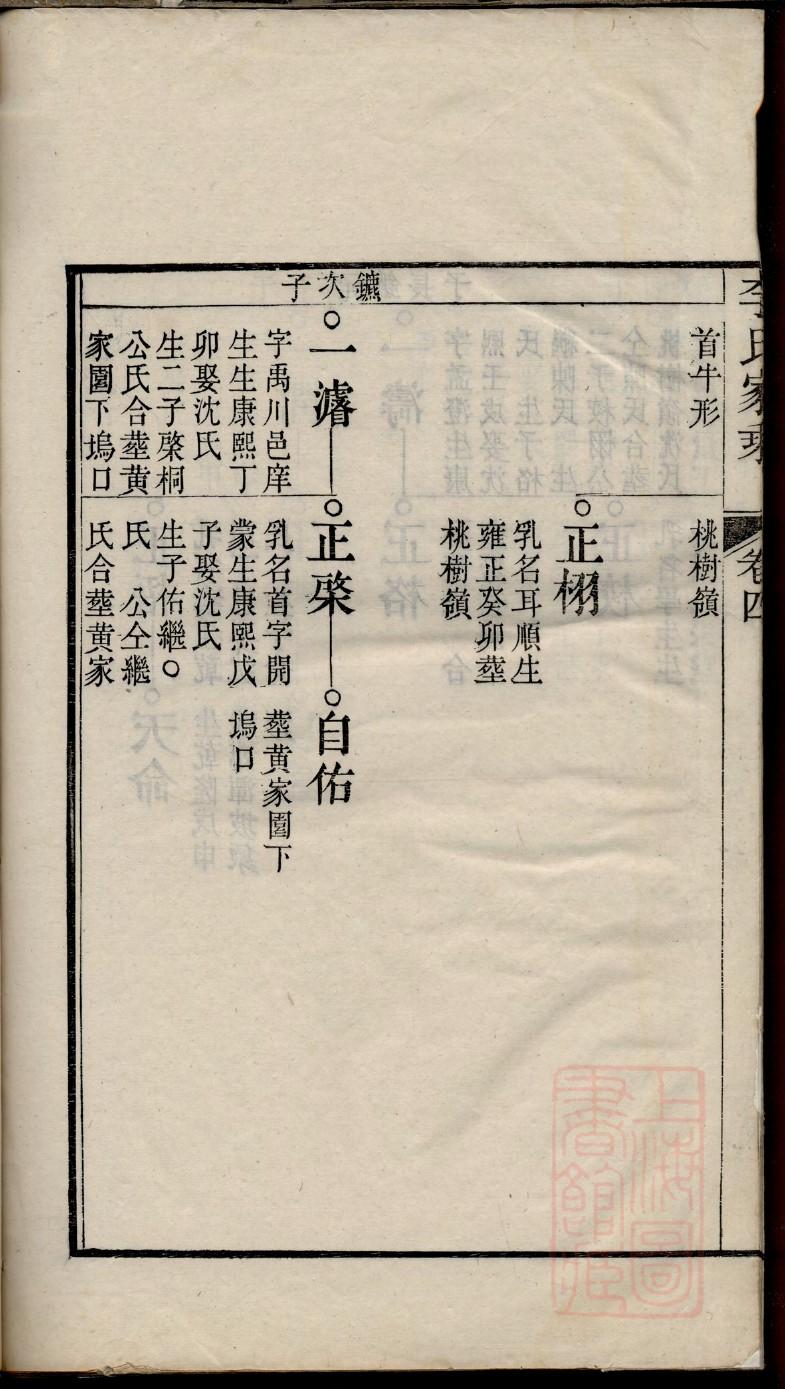 李氏家乘
卷四
首牛形
桃樹嶺
正栩
乳名耳順生
雍正癸卯塟
桃樹嶺
鑣次子
一濬
字禹川邑庠
生生康熙丁
卯娶沈氏
生二子棨桐
公氏合塟黄
家園下塢口
正棨
乳名首字開
蒙生康熙戊
子娶沈氏
生子佑繼
氏 公仝繼
氏合塟黄家
自佑
塟黄家園下
塢口
上海圖書館藏